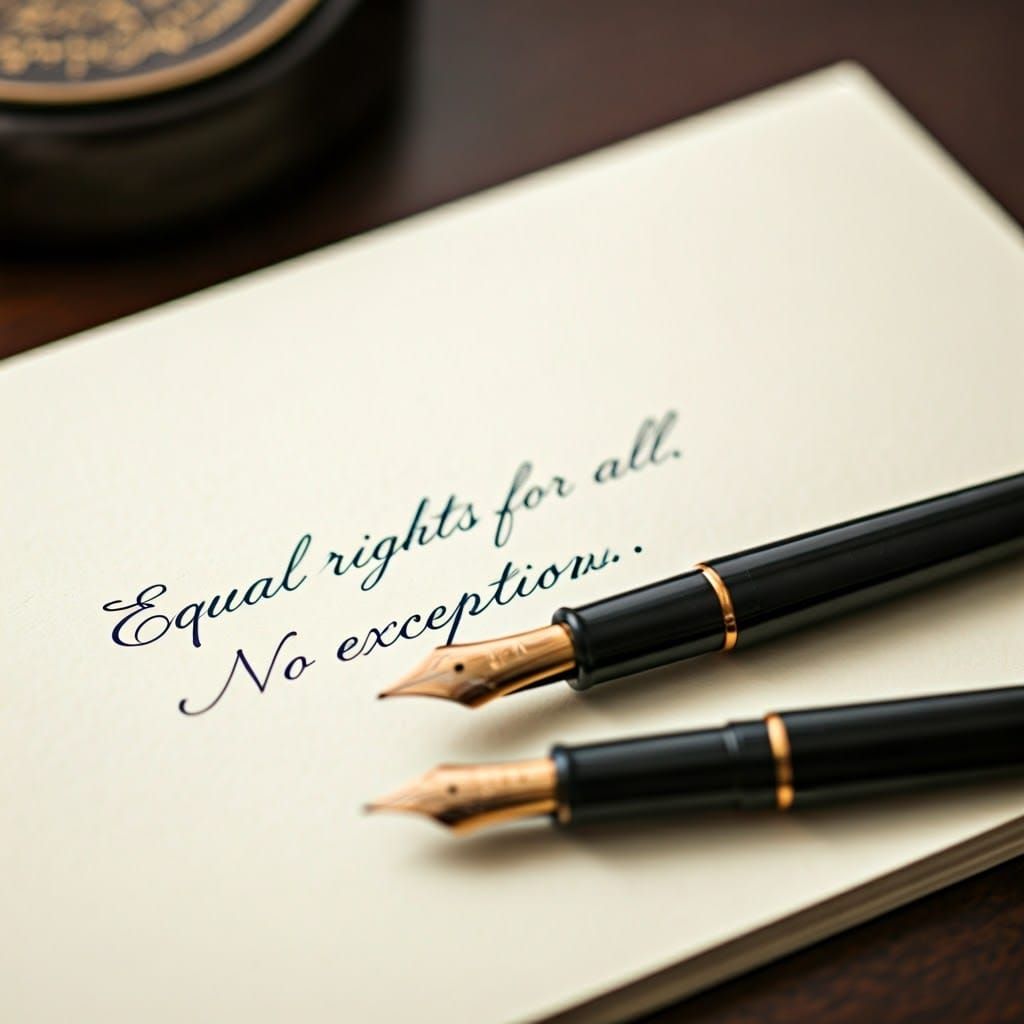 Equal rights for all.
No